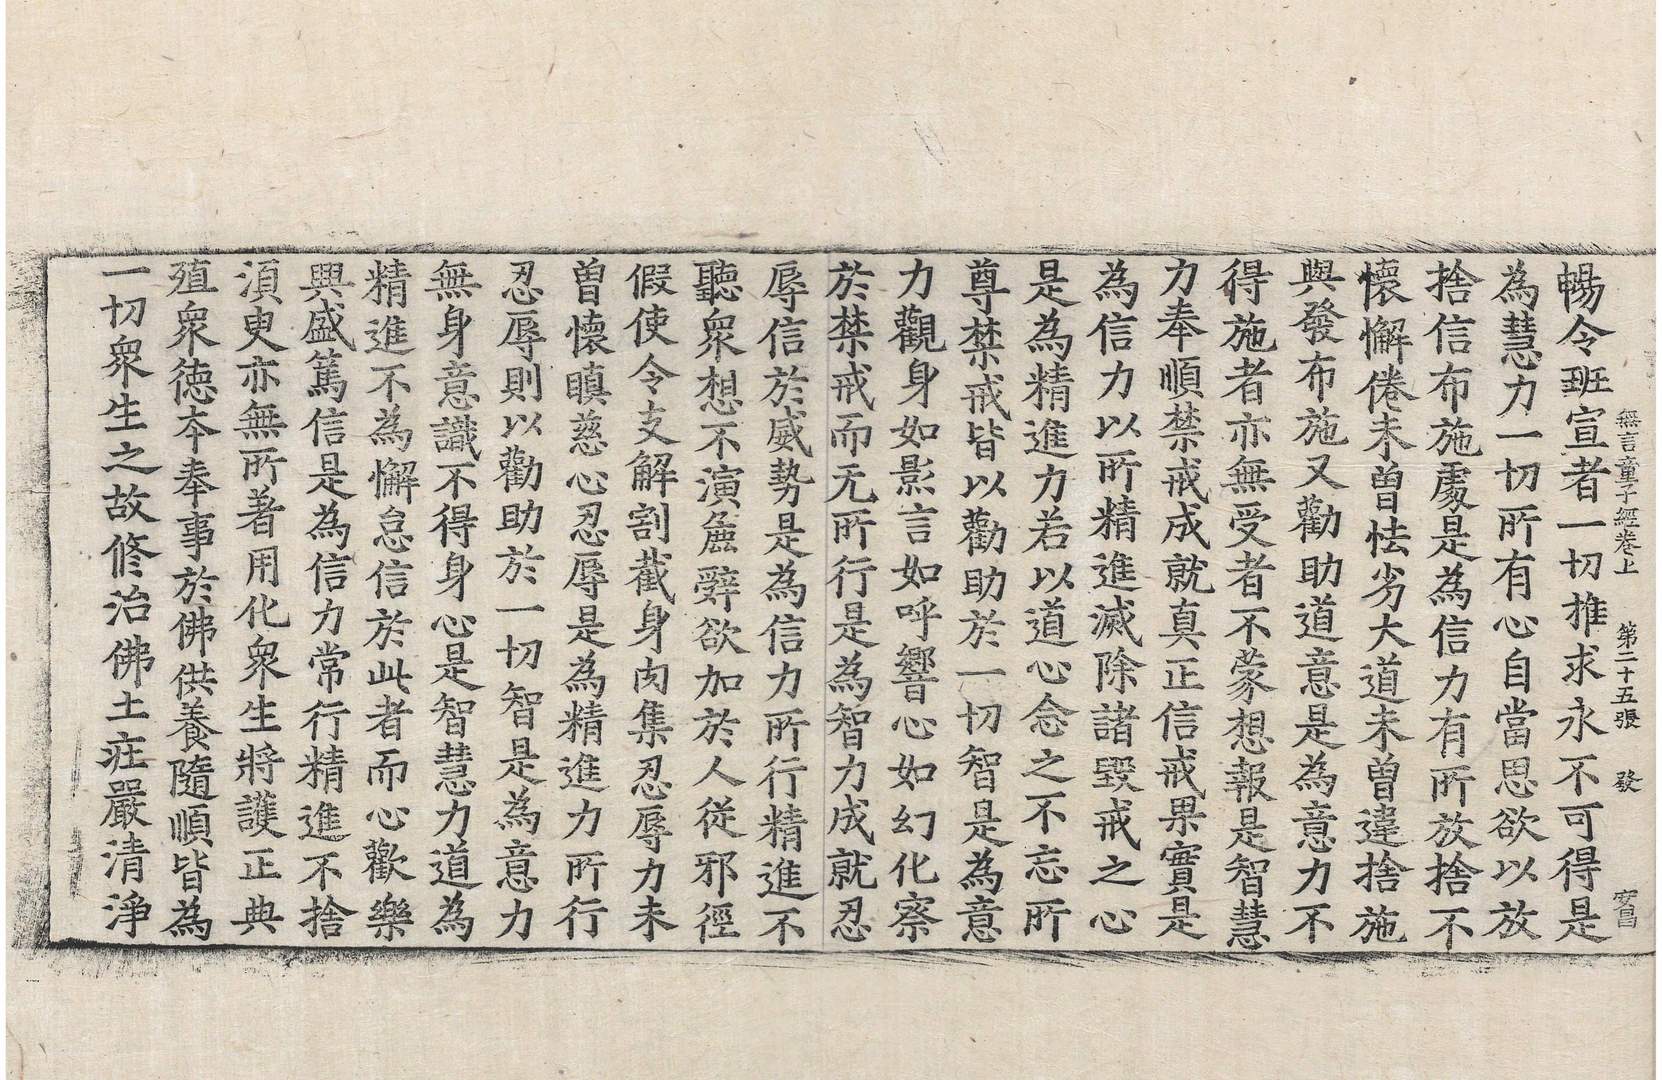 無言童子經卷上　第二十五張　發　安昌
暢令班宣者一切推求永不可得是
為慧力一切所有心自當思欲以放
捨信布施處是為信力有所放捨不
懷懈倦未曾怯劣大道未曾違捨施
與發布施又勸助道意是為意力不
得施者亦無受者不蒙想報是智慧
力奉順禁戒成就真正信戒果實是
為信力以所精進滅除諸毀戒之心
是為精進力若以道心念之不忘所
尊禁戒皆以勸助於一切智是為意
力觀身如影言如呼響心如幻化察
於禁戒而无所行是為智力成就忍
辱信於威勢是為信力所行精進不
聽衆想不演麁辭欲加於人従邪徑
假使令支解割截身肉集忍辱力未
曽懷瞋慈心忍辱是為精進力所行
忍辱則以勸助於一切智是為意力
無身意識不得身心是智慧力道為
精進不為懈怠信於此者而心歡樂
興盛篤信是為信力常行精進不捨
須臾亦無所著用化衆生將護正典
殖衆德夲奉事於佛供養隨順皆為
一切衆生之故修治佛土莊嚴清淨